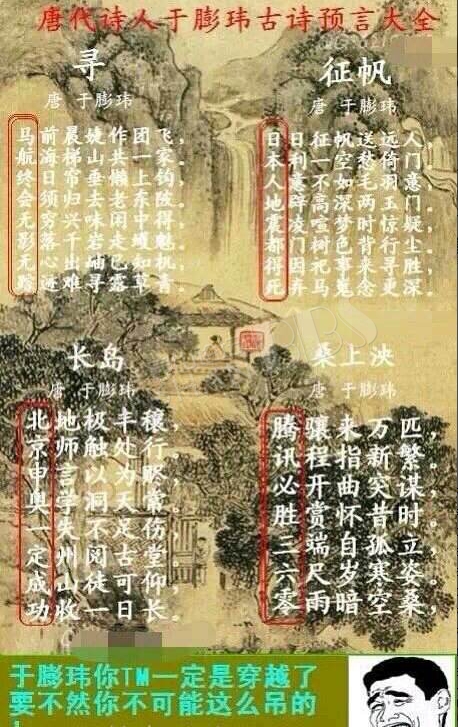 唐代诗人于膨玮古诗预言大全
寻
唐 于膨玮
马前晨婕作团飞，
航海梯山共一家。
终日帘垂懒上钩，
会须归去老东陂。
无穷兴味闲中得，
影落千岩走蠼魁。
无心出岫已知机，
踪迷难寻露草青。
征帆
唐 于膨玮
日日征帆送远人，
本利一空愁倚门。
人意不如毛羽意，
地辟高深两玉门。
震凌喧梦时惊疑，
都门树色背行尘。
得因祀事来寻胜，
死弃马嵬念更深。
长岛
唐 于膨玮
北地极丰穰，
京师触处行。
申言以为赆，
奥学洞天常。
一失不足伤，
定州阅古堂。
成山徒可仰，
功收一日长。
桑上泱
唐 于膨玮
腾骧来万匹。
讯程指新繁。
必开曲突谋，
胜赏怀昔时。
三端自孤立，
六尺岁寒姿，
零雨暗空桑，
于膨玮你TM一定是穿越了
要不然你不可能这么吊的